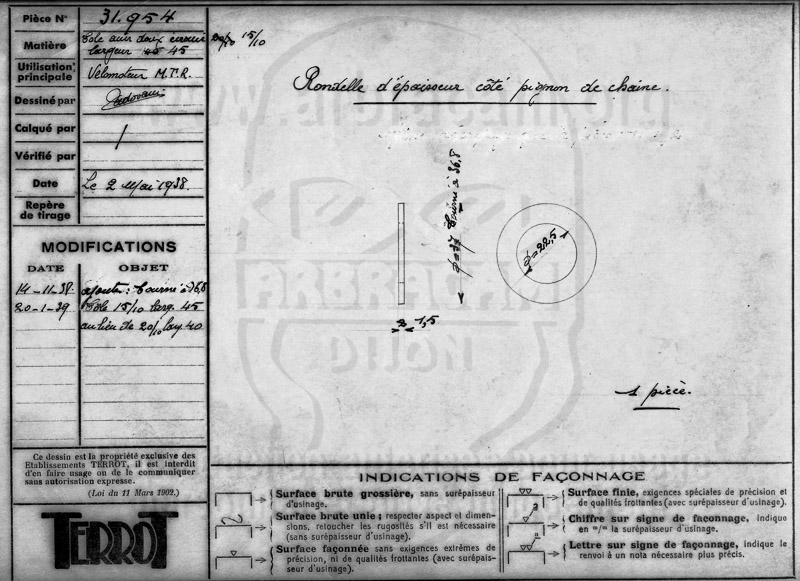 Pièce N° 31.954
Matière Tôle acier doux 15/10
largeur 45
Utilisation principale Vélomoteur M.T.R.
Dessiné par
Calqué par
Vérifié par
Date Le 2 Mai 1938.
Repère de tirage
MODIFICATIONS
DATE OBJET
14-11-38. ajouter : tourné à 36,8
20-1-39 Tôle 15/10 larg. 45
au lieu de 20/10 larg 40
Ce dessin est la propriété exclusive des
Etablissements TERROT, il est interdit
d'en faire usage ou de le communiquer
sans autorisation expresse.
(Loi du 11 Mars 1902.)
TERROT
Rondelle d'épaisseur côté pignon de chaine.
ø=37 tourné à 36,8
ø=22,5
2 1,5
1 pièce.
ARBRACAM
DIJON
INDICATIONS DE FAÇONNAGE
Surface brute grossière, sans surépaisseur
d'usinage.
Surface brute unie ; respecter aspect et dimen-
sions, retoucher les rugosités s'il est nécessaire
(sans surépaisseur d'usinage).
Surface façonnée sans exigences extrêmes de
précision, ni de qualités frottantes (avec surépais-
seur d'usinage).
Surface finie, exigences spéciales de précision et
de qualités frottantes (avec surépaisseur d'usinage).
Chiffre sur signe de façonnage, indique
en m/m la surépaisseur d'usinage.
Lettre sur signe de façonnage, indique le
renvoi à un nota nécessaire plus précis.